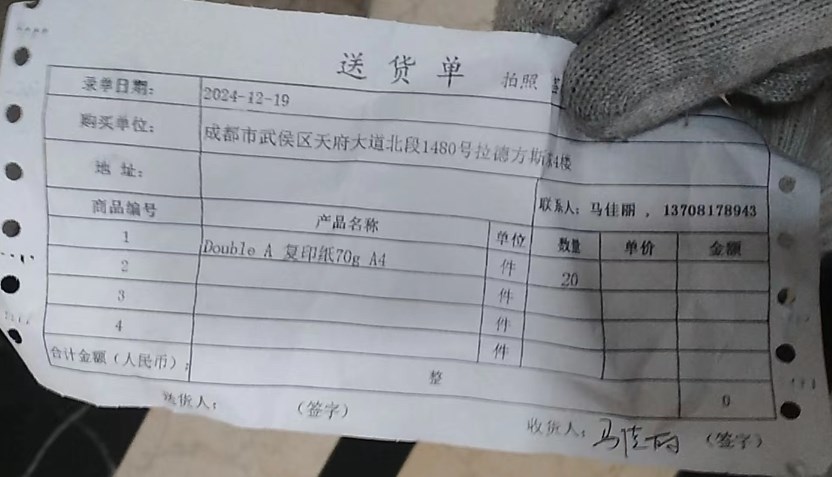 送货单 拍照
录单日期： 2024-12-19
购买单位： 成都市武侯区天府大道北段1480号拉德方斯 4楼
地 址：
联系人：马佳丽 ，13708178943
商品编号 产品名称 单位 数量 单价 金额
1 Double A 复印纸70g A4 件 20
2 件
3 件
4 件
合计金额（人民币）： 整 0
送货人： （签字） 收货人：马佳丽 （签字）